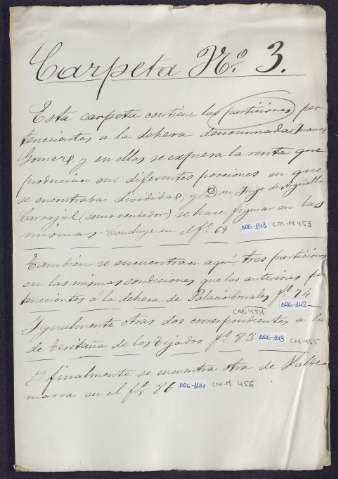 Carpeta Nº 3.
Esta carpeta contiene las particiones per
tenecientes a la dehesa denominada
Gomez, y en ellas se expresa la renta que
producían sus diferentes porciones en que
se encontraba dividida, y Don de Argüello
Carvajal (como vendedor) se hace figurar en las
mismas. Concluye en el fº 68 CM-M 453
También se encuentran aquí tres particiones
en las mismas condiciones que las anteriores per
tenecientes a la dehesa de fº 74
Igualmente otras dos correspondientes a la
de de los fº 83 CM-M 455
Y finalmente se encuentra otra de
en el fº 86 CM-M 456